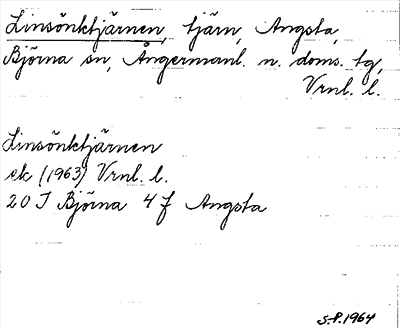 Linsönktjärnen, tjärn, Angsta,
Björna sn, Ångermanl. n. doms. tg,
Vrnl. l.
Linsönktjärnen
ek (1963) Vrnl. l.
20 I Björna 4 f Angsta
S.P. 1964